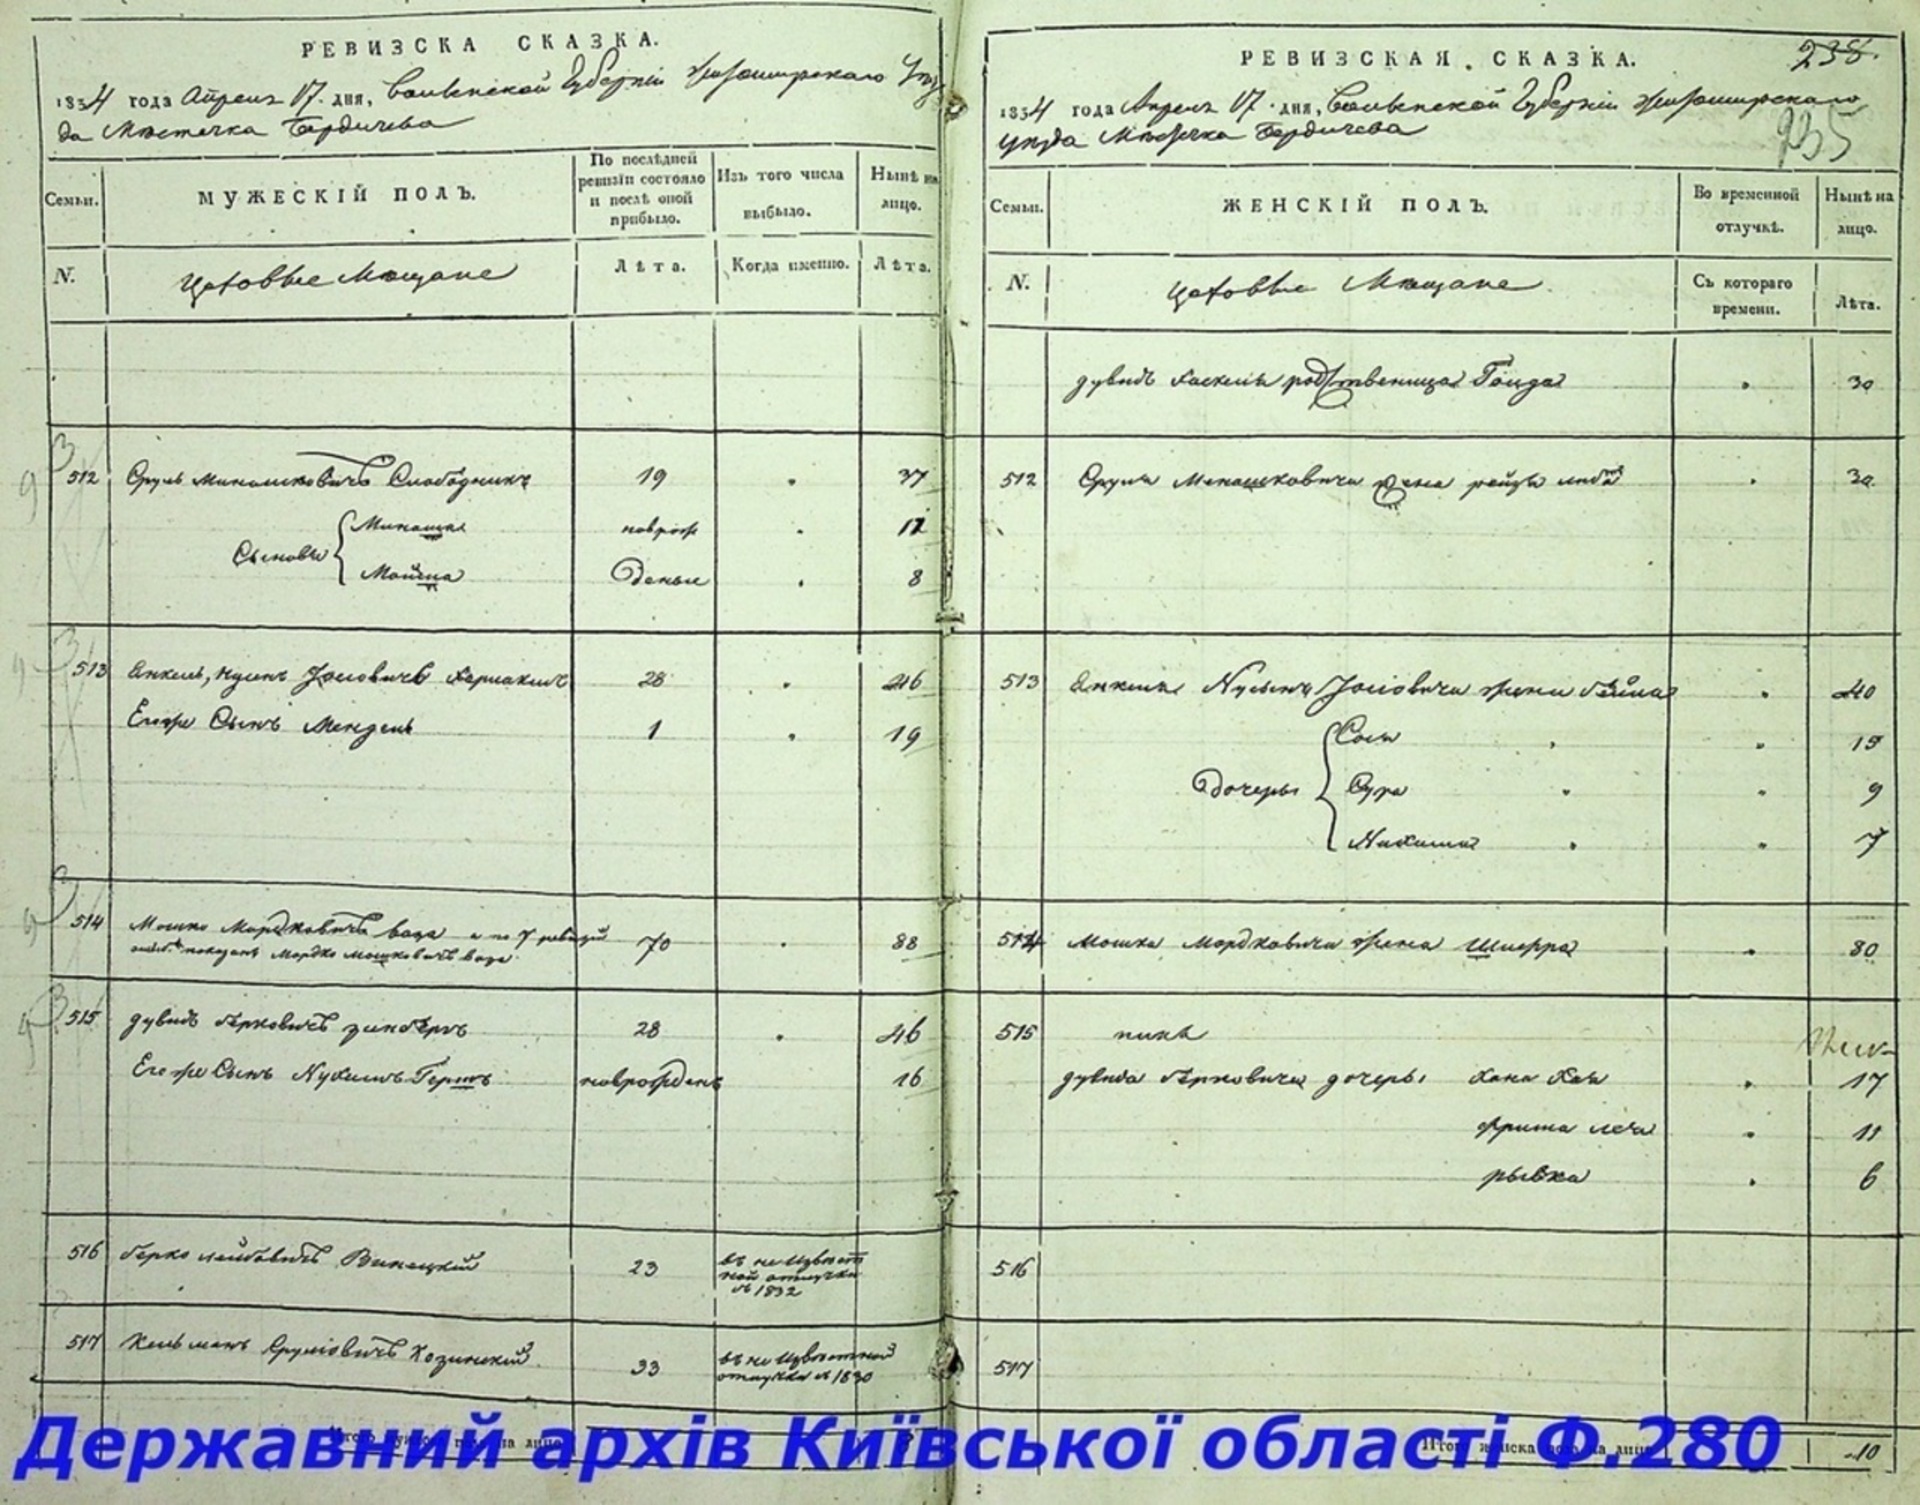 РЕВИЗСКА СКАЗКА.
1834 года Апреля 17. дня, Волынской Губернии Житомирскаго Уез
да Местечка Бердичева
Семьи.
МУЖЕСКІЙ ПОЛЪ.
По послѣдней ревизіи состояло и послѣ оной прибыло.
Изъ того числа выбыло.
Нынѣ на лицо.
N.
Цеховые Мещане
Лѣта.
Когда именно.
Лѣта.
512 Сруль Минашковичъ Слободникъ 19 37
Сыновья Минаша новорож 12
Мошка деные 8
513 Янкель, Нусинъ Іосіовичъ 28 46
Егоже Сынъ Мендель 1 19
514 Мошко Мордковичъ Вага а по 7 ревизіи 70 88
показанъ Мордко Мошковичъ Вага
515 дувидъ берковичъ зинбергъ 28 46
Егоже Сынъ Нухимъ Гершъ новорожденъ 16
516 берко лейбовичъ Винецкій 23 въ неизвест
ной отлучке
съ 1832
517 Кельманъ Сруліовичъ Козинскій 33 въ неизвестной
отлучке съ 1830
РЕВИЗСКАЯ СКАЗКА.
238.
235
1834 года Апреля 17. дня, Волынской Губерніи Житомирскаго
уезда Местечка Бердичева
Семьи.
ЖЕНСКІЙ ПОЛЪ.
Во временной отлучкѣ.
Нынѣ на лицо.
N.
Цеховые Мещане
Съ котораго времени.
Лѣта.
дувидъ Хаскеля родственица Гольда 30
512 Сруля Менашковича жена рейзя либа 30
513 Янкеля Нусына Іосіовича жена бейла 40
Дочеры Сося 15
Сура 9
7
514 Мошка Мордковича жена Шифра 80
515
дувида берковича дочеры Хана Хая 17
11
рывка 6
516
517
Итого женска пола на лицо 10
Державний архів Київської області Ф.280